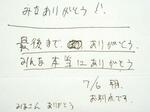 みなありがとう!!
最後まで ありがとう.
みんな本当にありがとう
7/6 朝.
お別れです
みなさん ありがとう